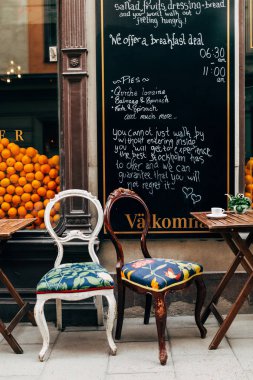 salad, fruits, dressing-bread
and you won't walk out
feeling hungry!
We offer a breakfast deal
06:30
11:00
am
~Pies~
Quiche Lorraine
& Spinach
Pork & Spinach
and much more...
you cannot just walk by
without entering inside
you will get to experience
the best Stockholm has
to offer and we can
guarantee that you will
not regret it...
Välkomna
ER